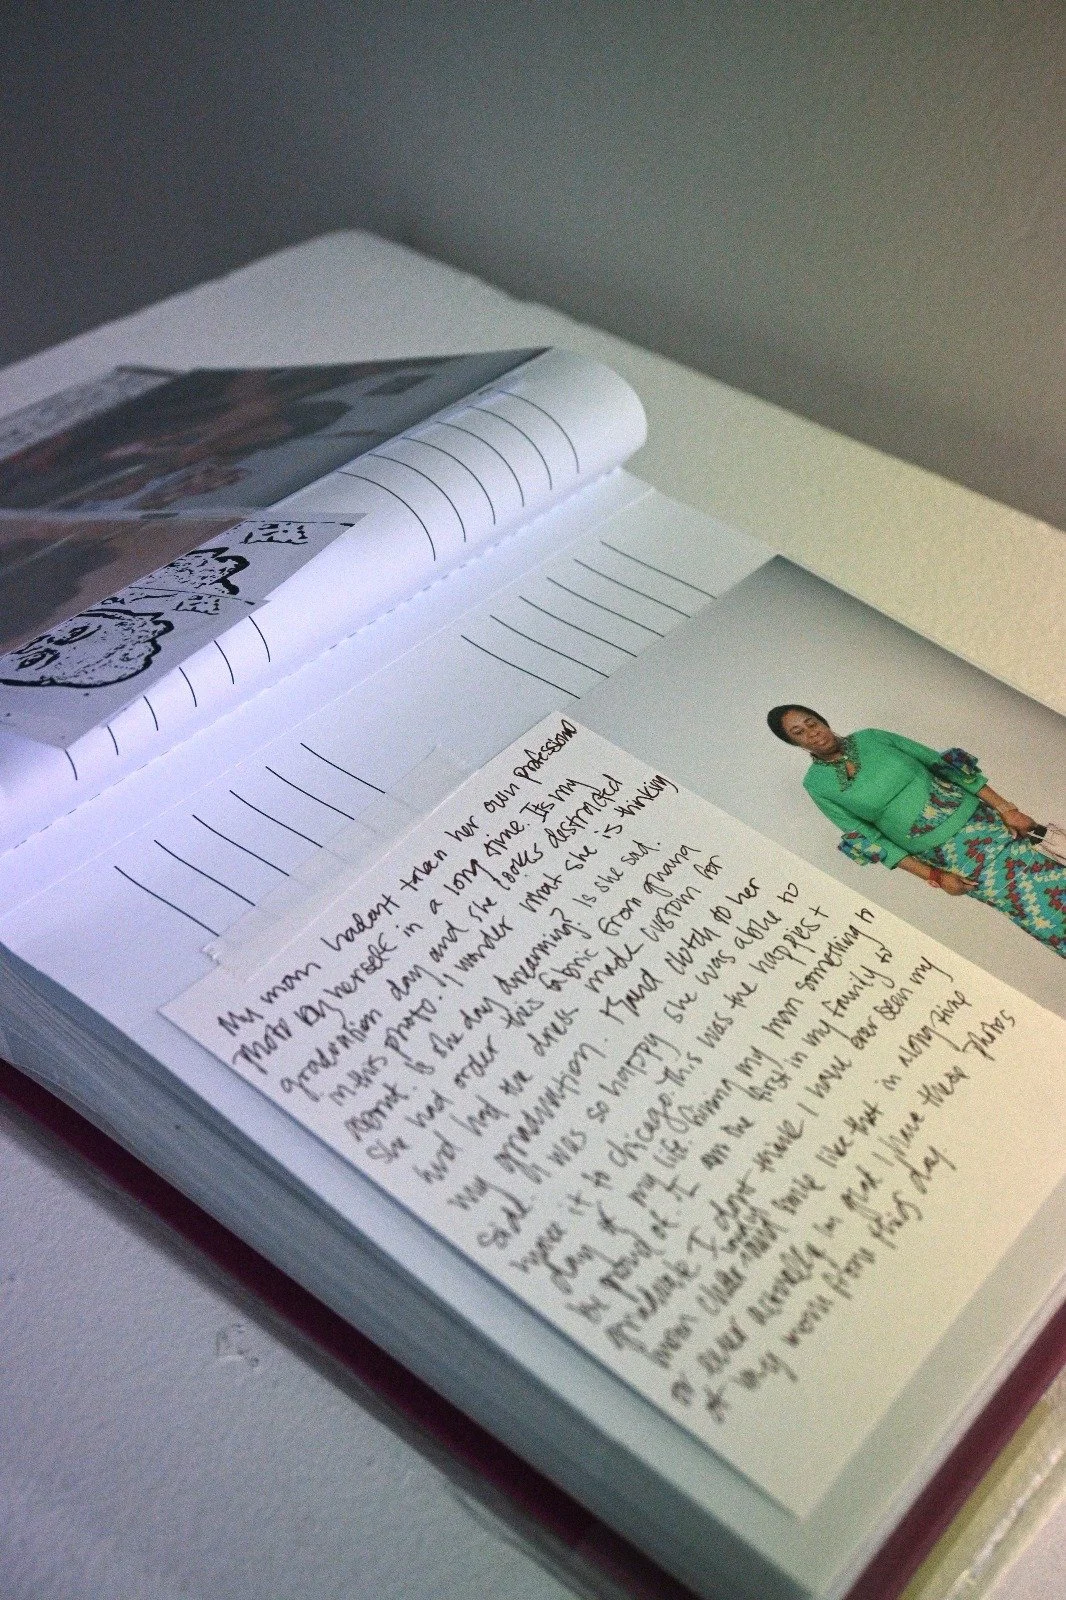 My mom hadn't taken her own professional
photo by herself in a long time. Its my
graduation day and she looks distracted
in this photo. I wonder what she is thinking
about. Is she day dreaming? Is she sad.
She had order this fabric from ghana
and had the dress made custom for
my graduation. Kaird cloth to her
said. It was so happy she was able to
make it to Chicago. This was the happiest
day of my life. Giving my mom something to
be proud of. I am the first in my family to
graduate I don't think I have ever seen my
mom cheer and smile like that in a long time
or ever actually im glad I have these photos
of my mom from this day.